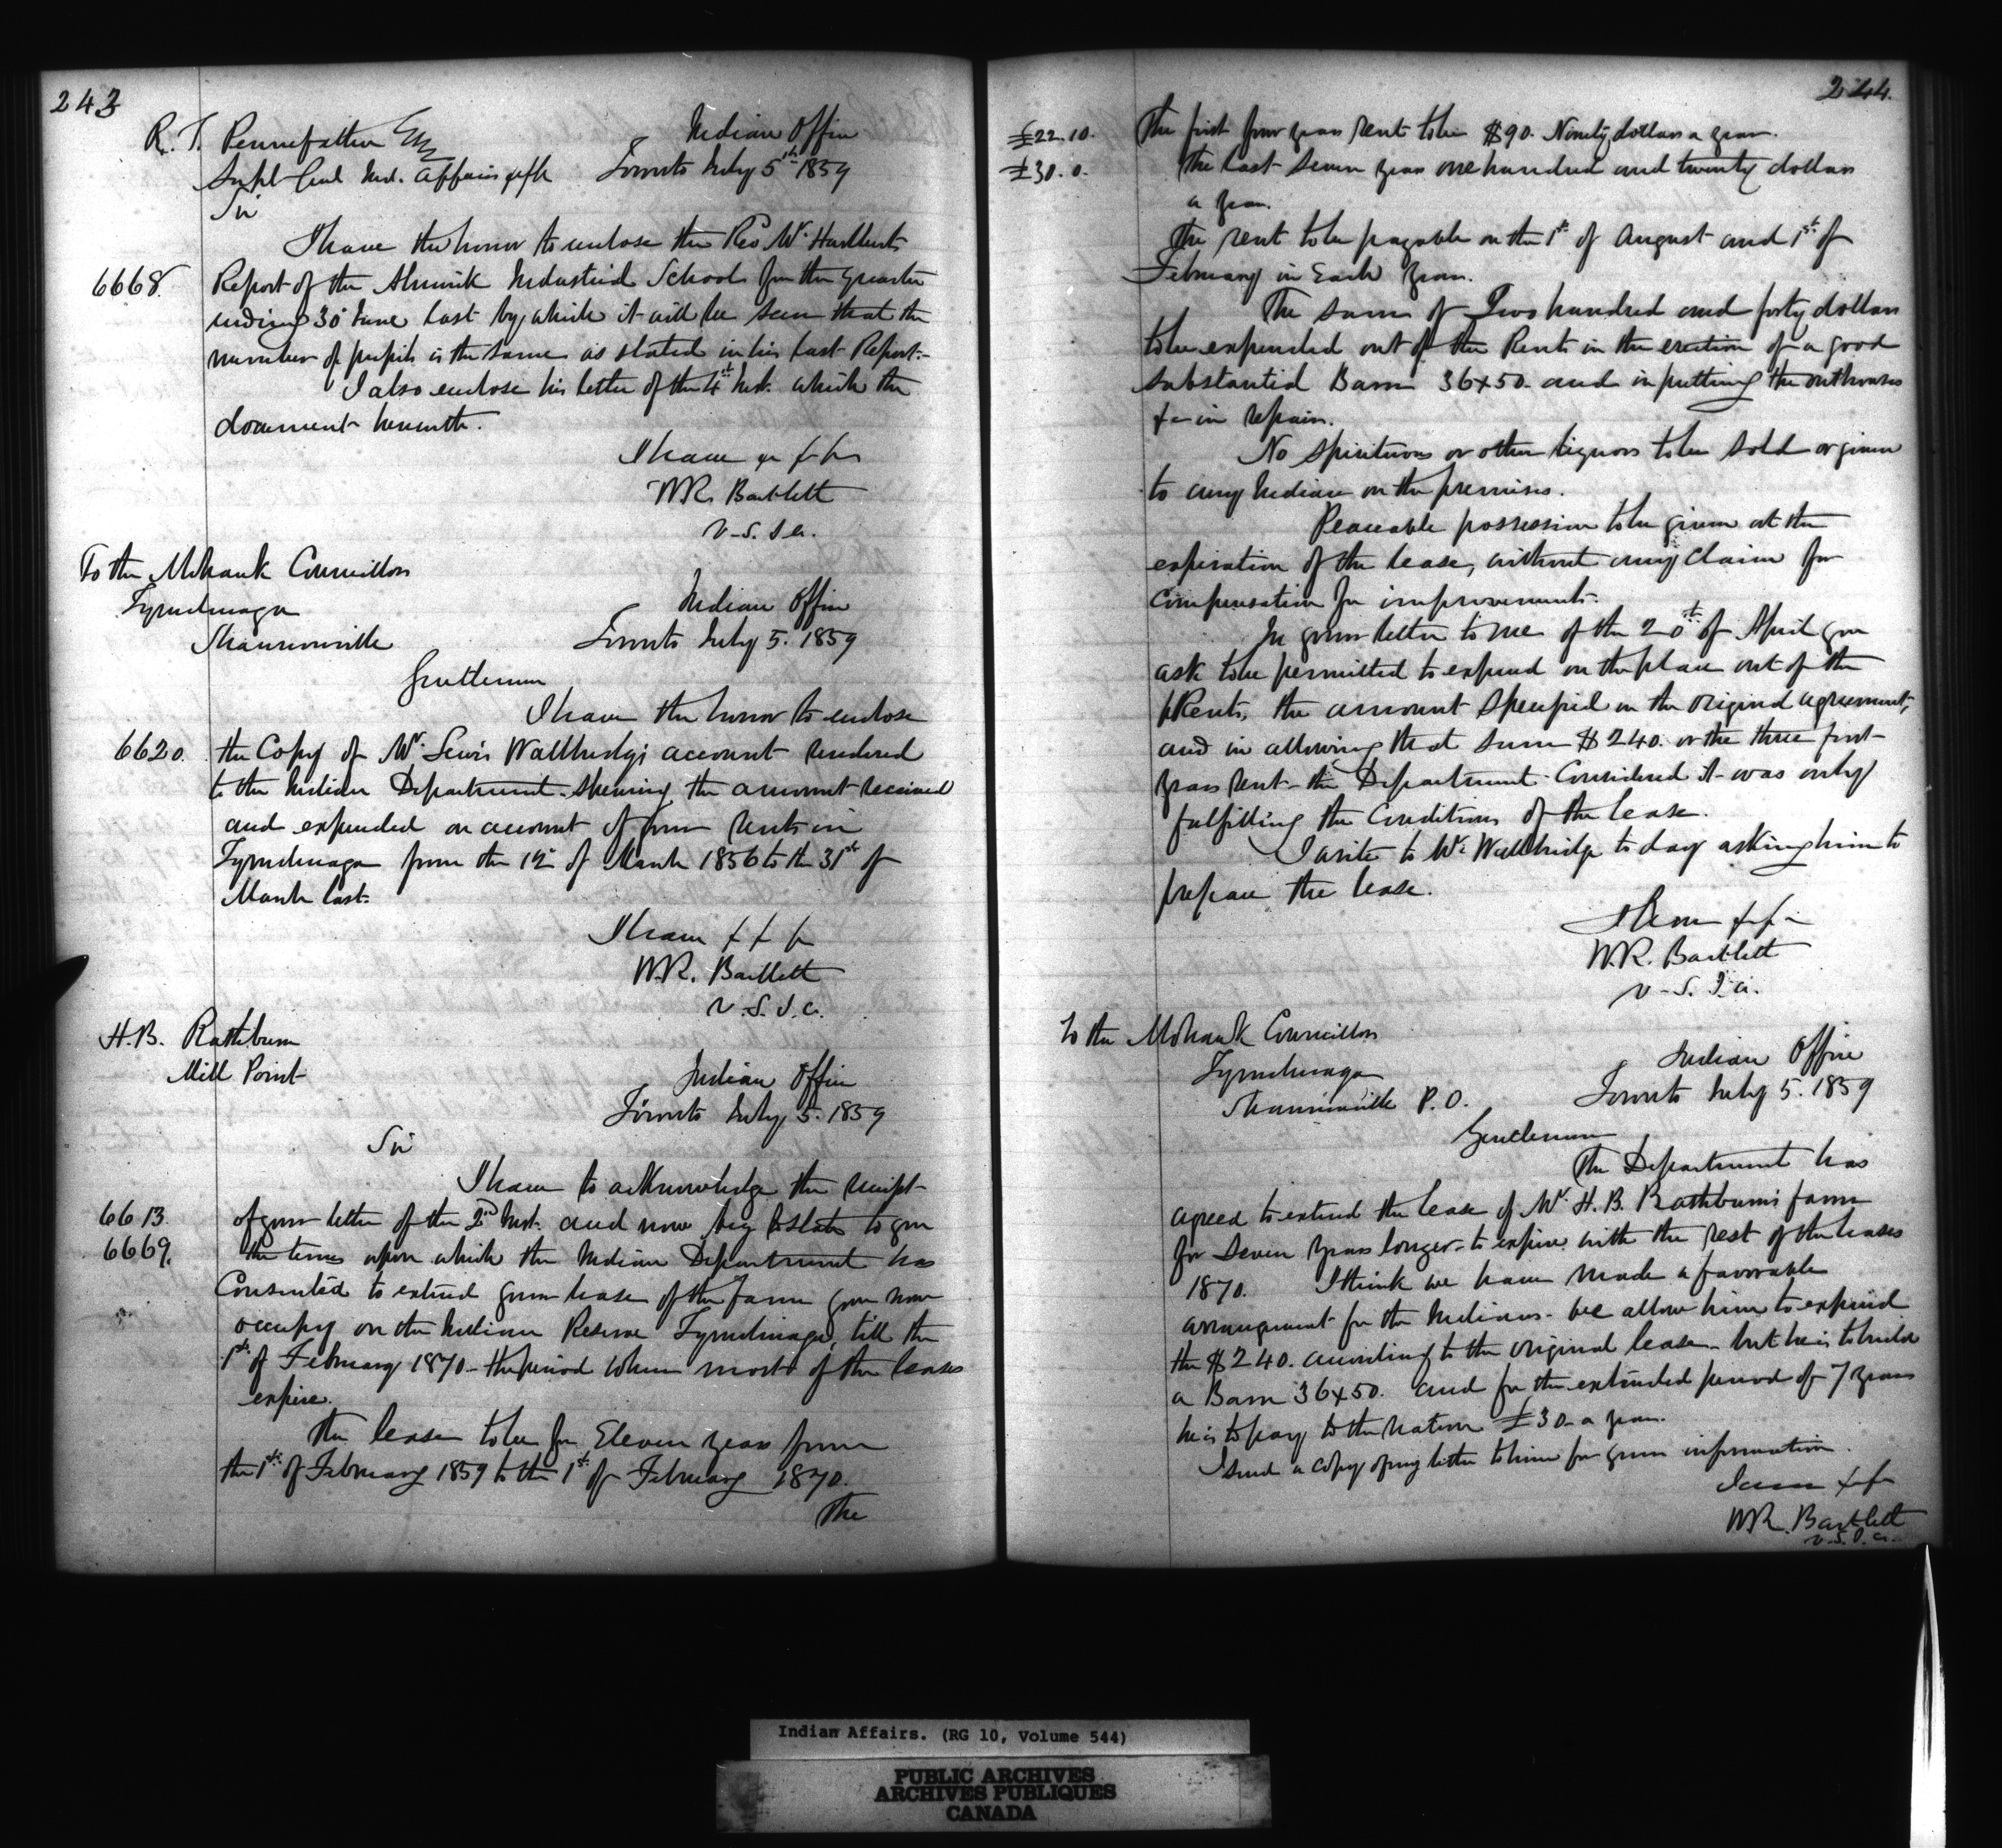 243
R. T. Pennefather Esq
Indian Office
Supt Genl Ind. Affairs &c &c
Toronto July 5th 1859
Sir
I have the honor to enclose the Rev Wm Hurlburt's
6668. Report of the Alnwick Industrial School for the Quarter
ending 30 June last by which it will be seen that the
number of pupils is the same as stated in his last Report.-
I also enclose his letter of the 4th Inst. which the
document herewith.
I have &c &c &c
W.R. Bartlett
V.S.I.A.
To the Mohawk Councillors
Tyendinaga
Indian Office
Shannonville
Toronto July 5. 1859
Gentlemen
I have the honor to enclose
6620. the Copy of Mr. Lewis Wallbridge's account rendered
to the Indian Department shewing the amount received
and expended on account of your rents in
Tyendinaga from the 12 of March 1856 to the 31st of
March last.
I have & & &c
W.R. Bartlett
V.S.I.A.
H.B. Rathbun
Mill Point
Indian Office
Toronto July 5. 1859
Sir
I have to acknowledge the receipt
6613. of your letter of the 2nd Inst. and now beg to state to you
6669. the terms upon which the Indian Department has
Consented to extend your lease of the farm you now
occupy on the Indian Reserve Tyendinaga, till the
1st of February 1870 - the period when most of the leases
expire.
The lease to be for Eleven years from
the 1st of February 1859 to the 1st of February 1870.
The
244.
£22.10. The first four years rent to be $90. Ninety dollars a year.
£30.0. The last seven years one hundred and twenty dollars
a year.
The rent to be payable on the 1st of August and 1st of
February in Each Year.
The sum of Two hundred and forty dollars
to be expended out of the Rents in the erection of a good
substantial Barn 36x50. and in putting the outhouses
&c in repair.
No spirituous or other liquors to be sold or given
to any Indian on the premises.
Peaceable possession to be given at the
expiration of the lease, without any claim for
compensation for improvements.
In your letter to me of the 20th of April you
ask to be permitted to expend on the place out of the
Rents, the amount specified in the original agreement,
and in allowing that sum $240. or the three first
years rent - the Department Considered it was only
fulfilling the Conditions of the lease.
I write to Mr. Wallbridge to day asking him to
prepare the lease.
I have &c &c
W.R. Bartlett
V.S.I.A.
To the Mohawk Councillors
Tyendinaga
Indian Office
Shannonville P.O.
Toronto July 5. 1859
Gentlemen
The Department has
agreed to extend the lease of Mr. H.B. Rathbun's farm
for seven years longer - to expire with the rest of the leases
1870. I think we have made a favorable
arrangement for the Indians - we allow him to expend
the $240. according to the original lease - but he is to build
a Barn 36x50. and for the extended period of 7 years
he is to pay to the nation £30 - a year.
I send a copy of my letter to him for your information.
I am &c &c
W.R. Bartlett
V.S.I.A.
Indian Affairs. (RG 10, Volume 544)
PUBLIC ARCHIVES
ARCHIVES PUBLIQUES
CANADA